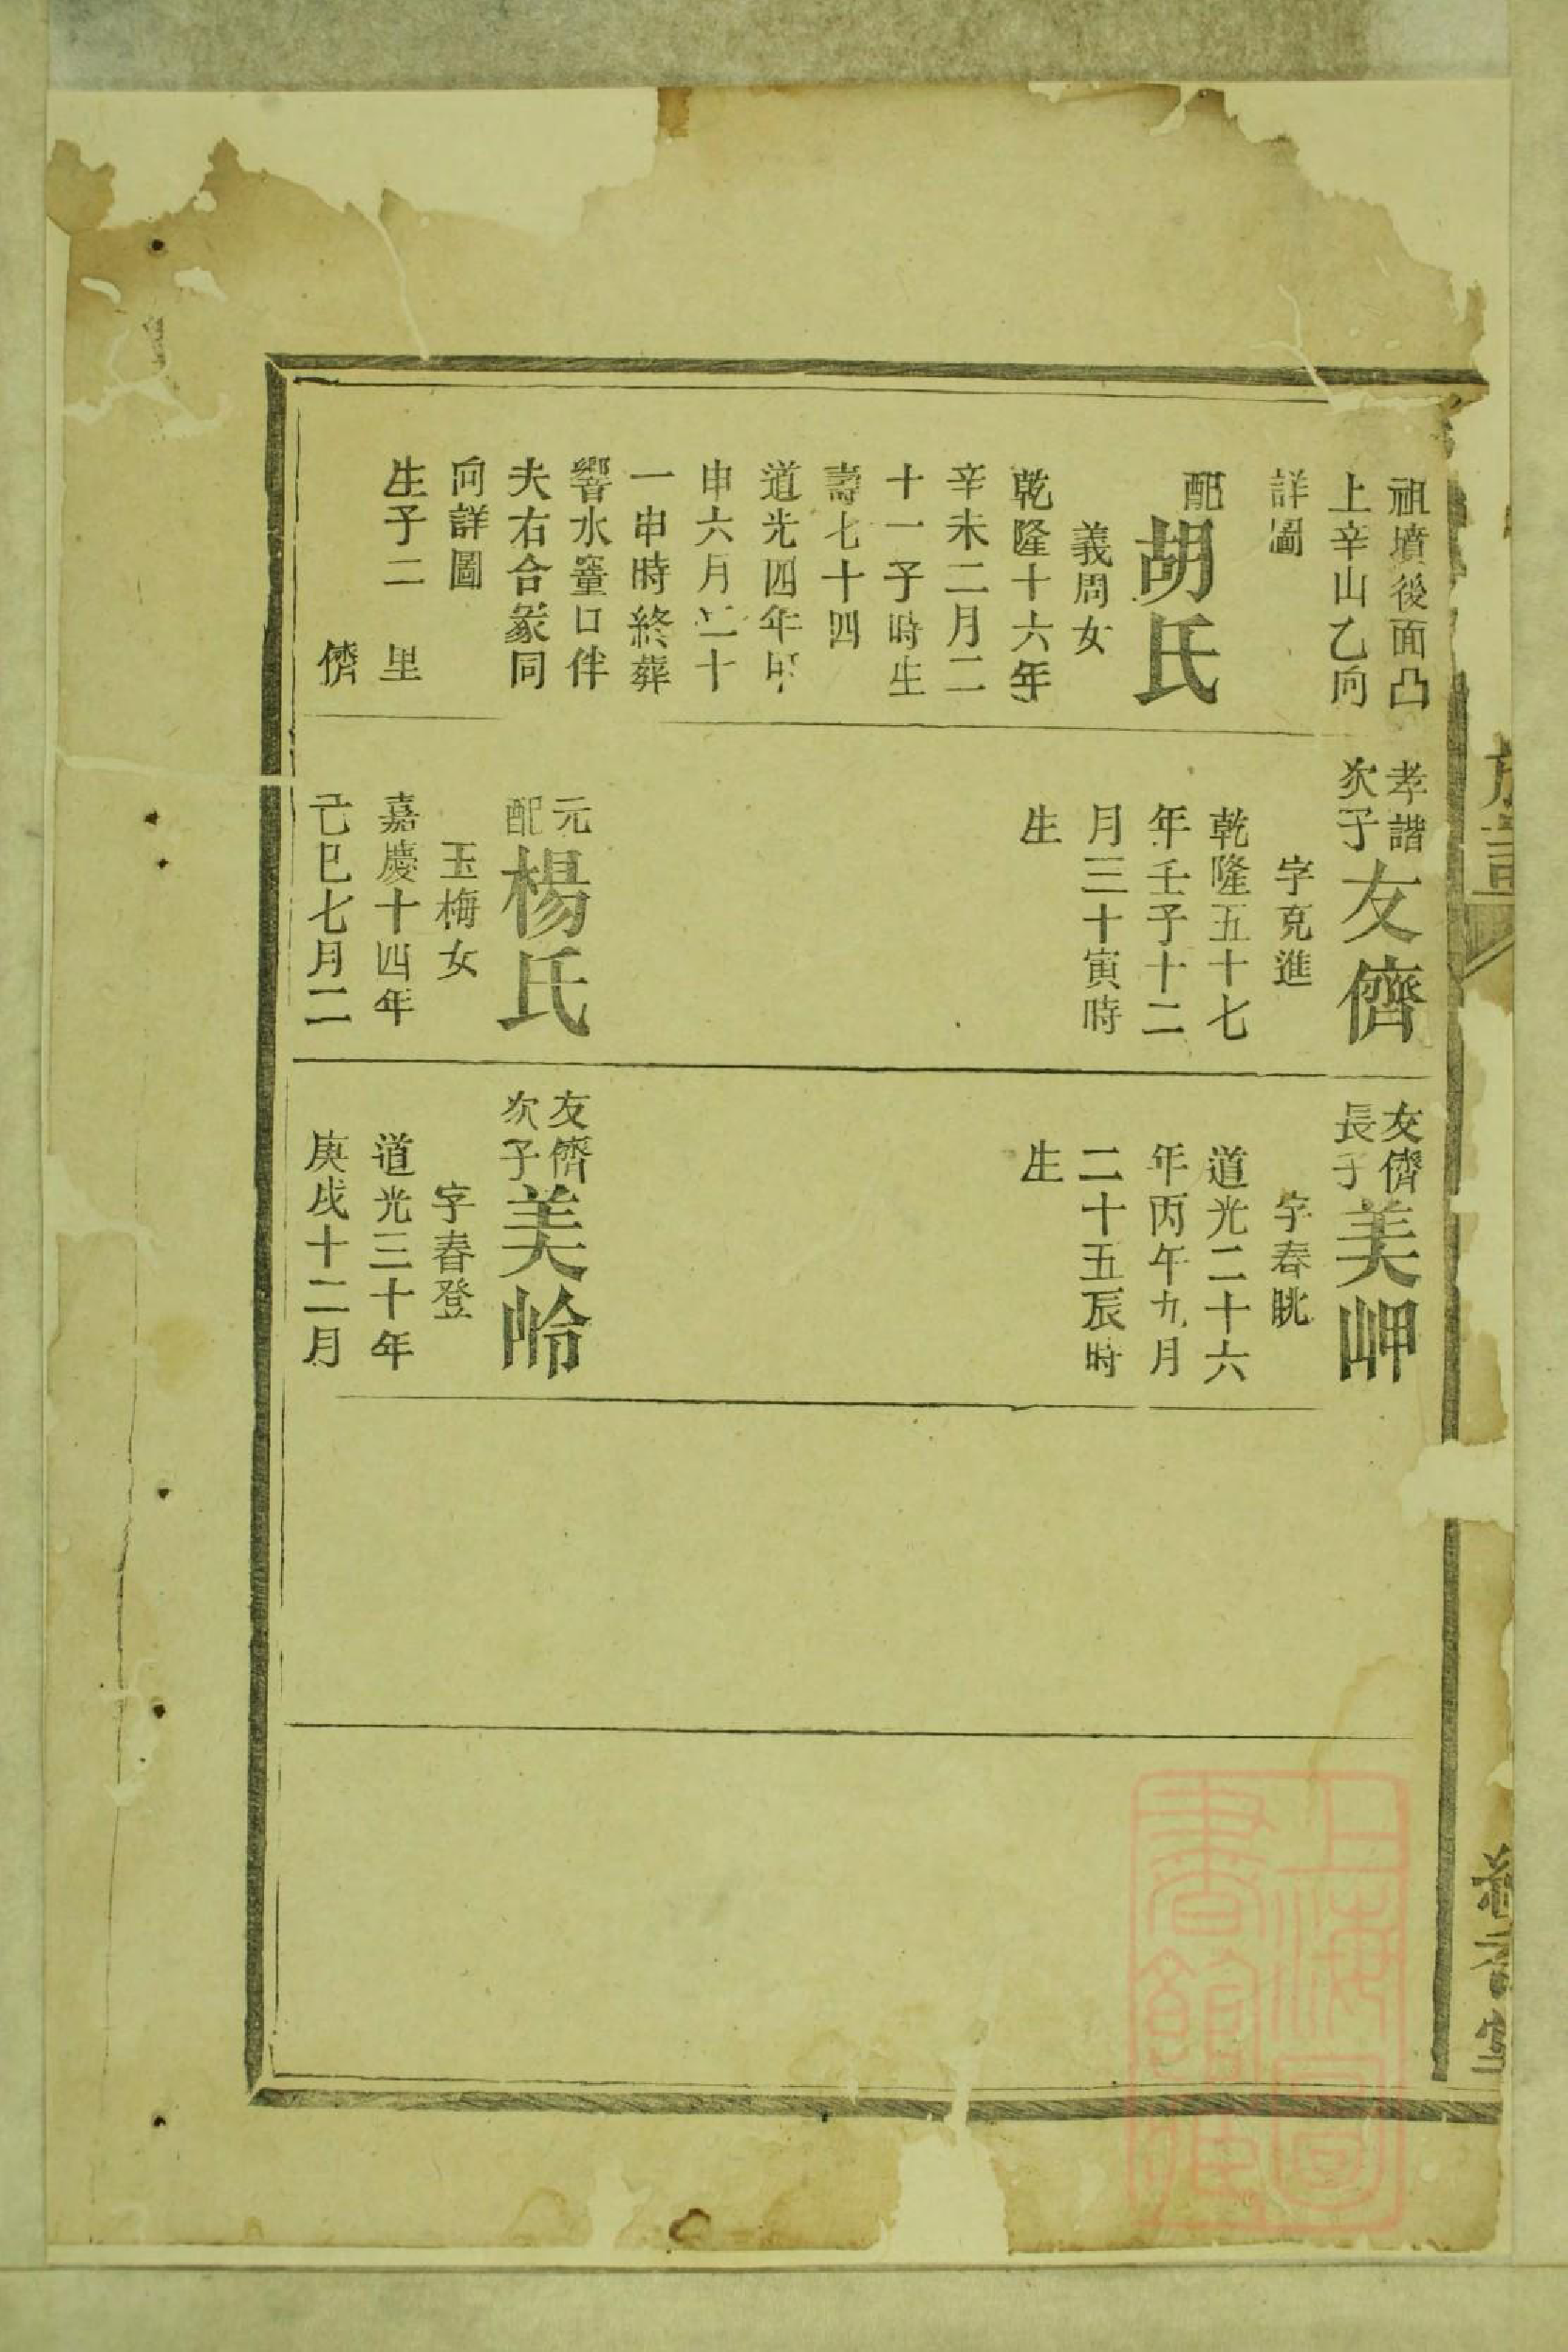 祖墳後面凸
上辛山乙向
詳圖
配胡氏
義周女
乾隆十六年
辛未二月二
十一子時生
壽七十四
道光四年甲
申六月二十
一申時終葬
響水窰口伴
夫右合冢同
向詳圖
生子二 里
儕
孝諧
次子
友儕
字克進
乾隆五十七
年壬子十二
月三十寅時
生
元
配
楊氏
玉梅女
嘉慶十四年
己巳七月二
友儕
長子
美岬
字春眺
道光二十六
年丙午九月
二十五辰時
生
友儕
次子
美岭
字春登
道光三十年
庚戌十二月
上海圖
書館藏